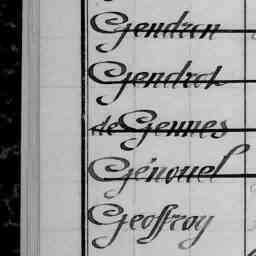 Gendron
Gendrot
de Gennes
Génouel
Geoffroy